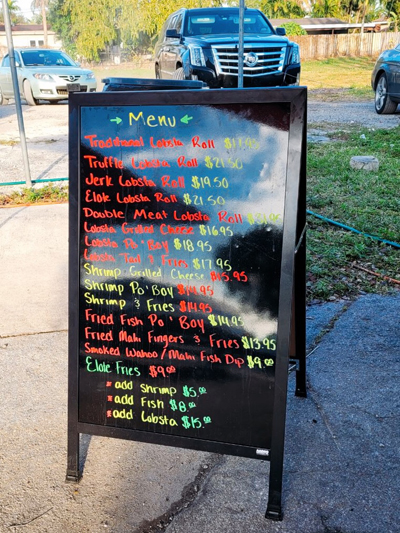 → Menu ←
Traditional Lobsta Roll $17.95
Truffle Lobsta Roll $21.50
Jerk Lobsta Roll $19.50
Elote Lobsta Roll $21.50
Double Meat Lobsta Roll
Lobsta Grilled Cheese $16.95
Lobsta Po' Boy $18.95
Lobsta Tail & Fries $17.95
Shrimp Grilled Cheese $15.95
Shrimp Po' Boy $14.95
Shrimp & Fries $14.95
Fried Fish Po' Boy $14.95
Fried Mahi Fingers & Fries $13.95
Smoked Wahoo/Mahi Fish Dip $9.00
Elote Fries $9.00
add Shrimp $5.00
add Fish $8.00
add Lobsta $15.00